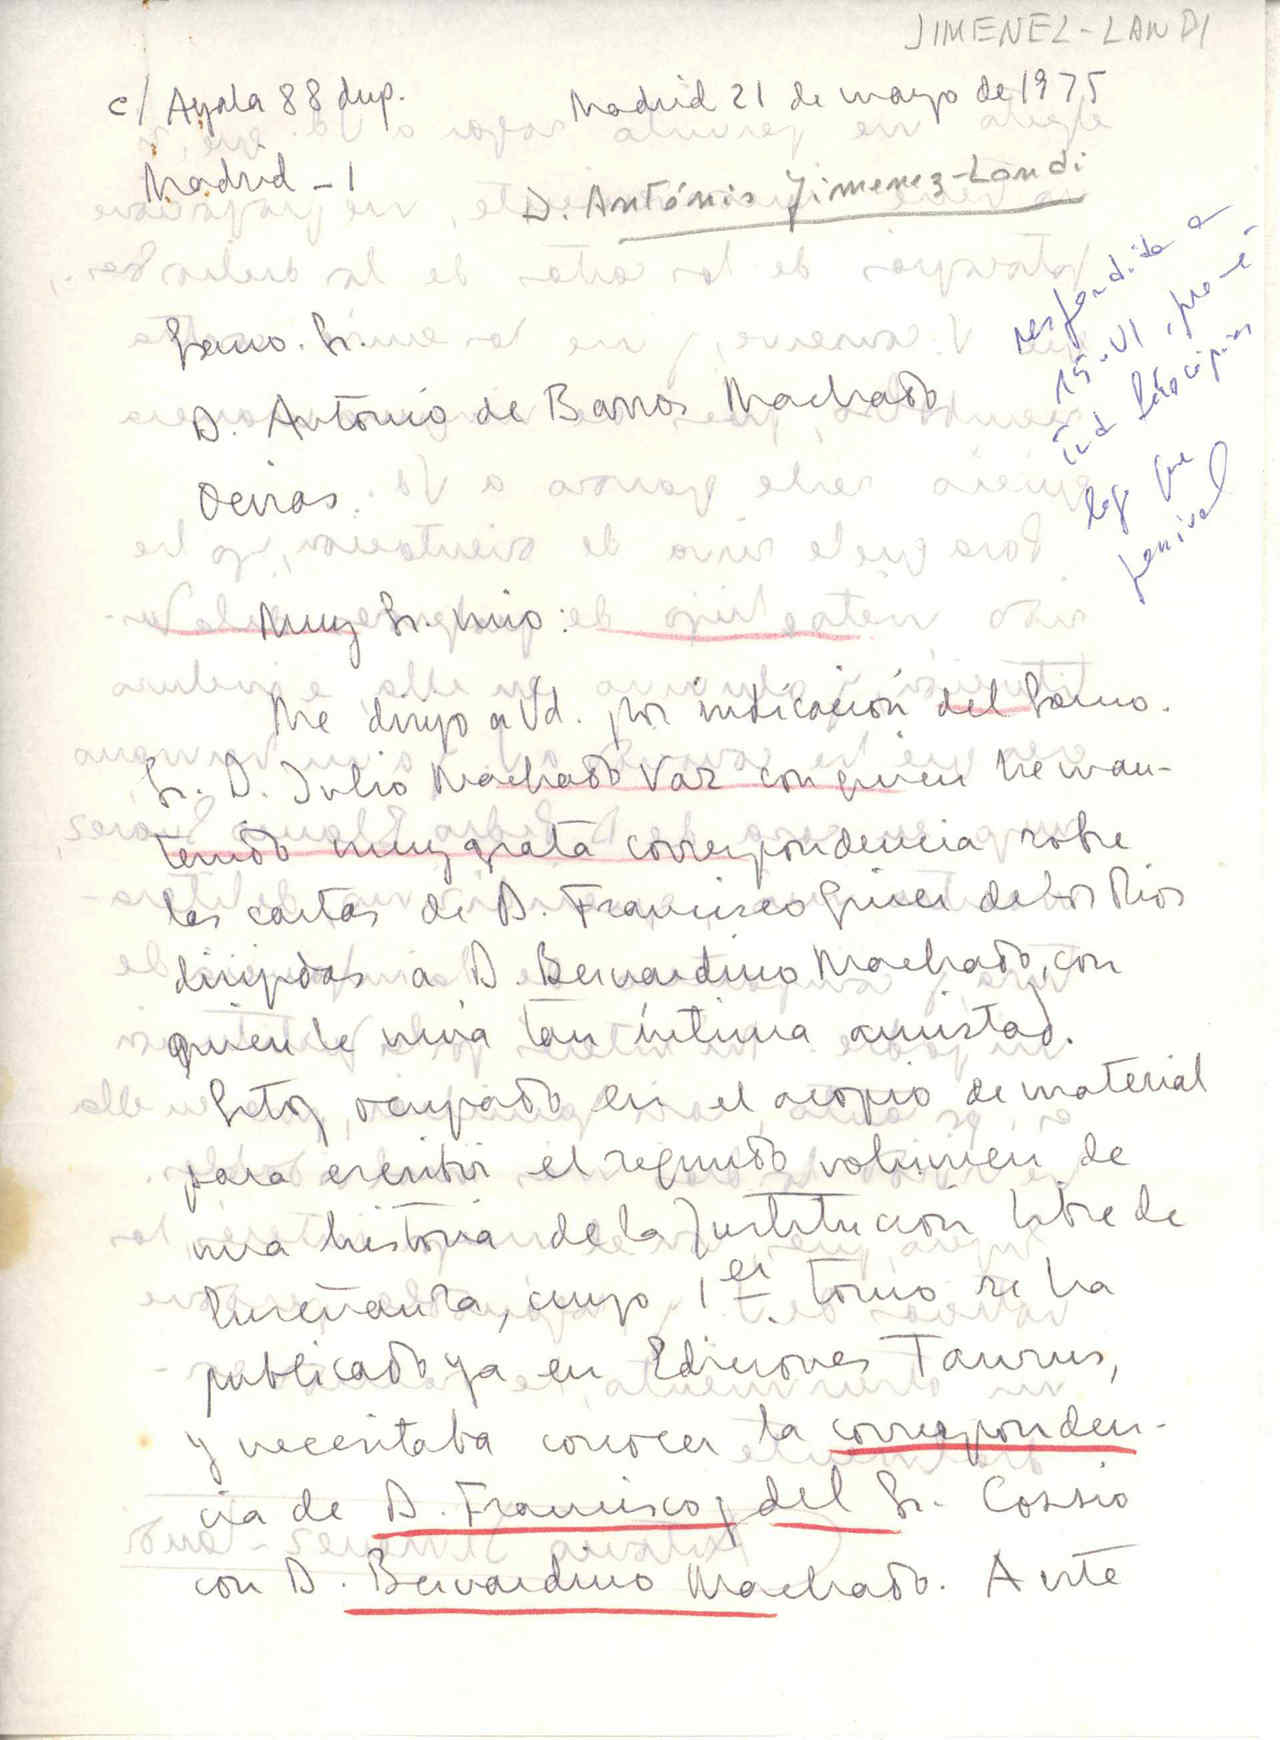 JIMENEZ-LANDI
c/ Ayala 88 dup.
Madrid 21 de mayo de 1975
Madrid-1
D. António Jimenez-Landi
respondida a
15-VI, pro-
fotocópias
logo que
possível
Excmo. Sr.
D. António de Barros Machado
Oeiras.
Muy Sr. mio:
Me dirijo a Vd. por indicación del Excmo.
Sr. D. Julio Machado Vaz con quien he man-
tenido muy grata correspondencia sobre
las cartas de D. Francisco Giner de los Rios
dirigidas a D. Bernardino Machado, con
quien le unia tan íntima amistad.
Estoy ocupado en el acopio de material
para escribir el segundo volumen de
una historia de la Institución Libre de
Enseñanza, cuyo 1er tomo se ha
publicado ya en Ediciones Taurus,
y necesitaba conocer la corresponden-
cia de D. Francisco y del Sr. Cossio
con D. Bernardino Machado. Ante